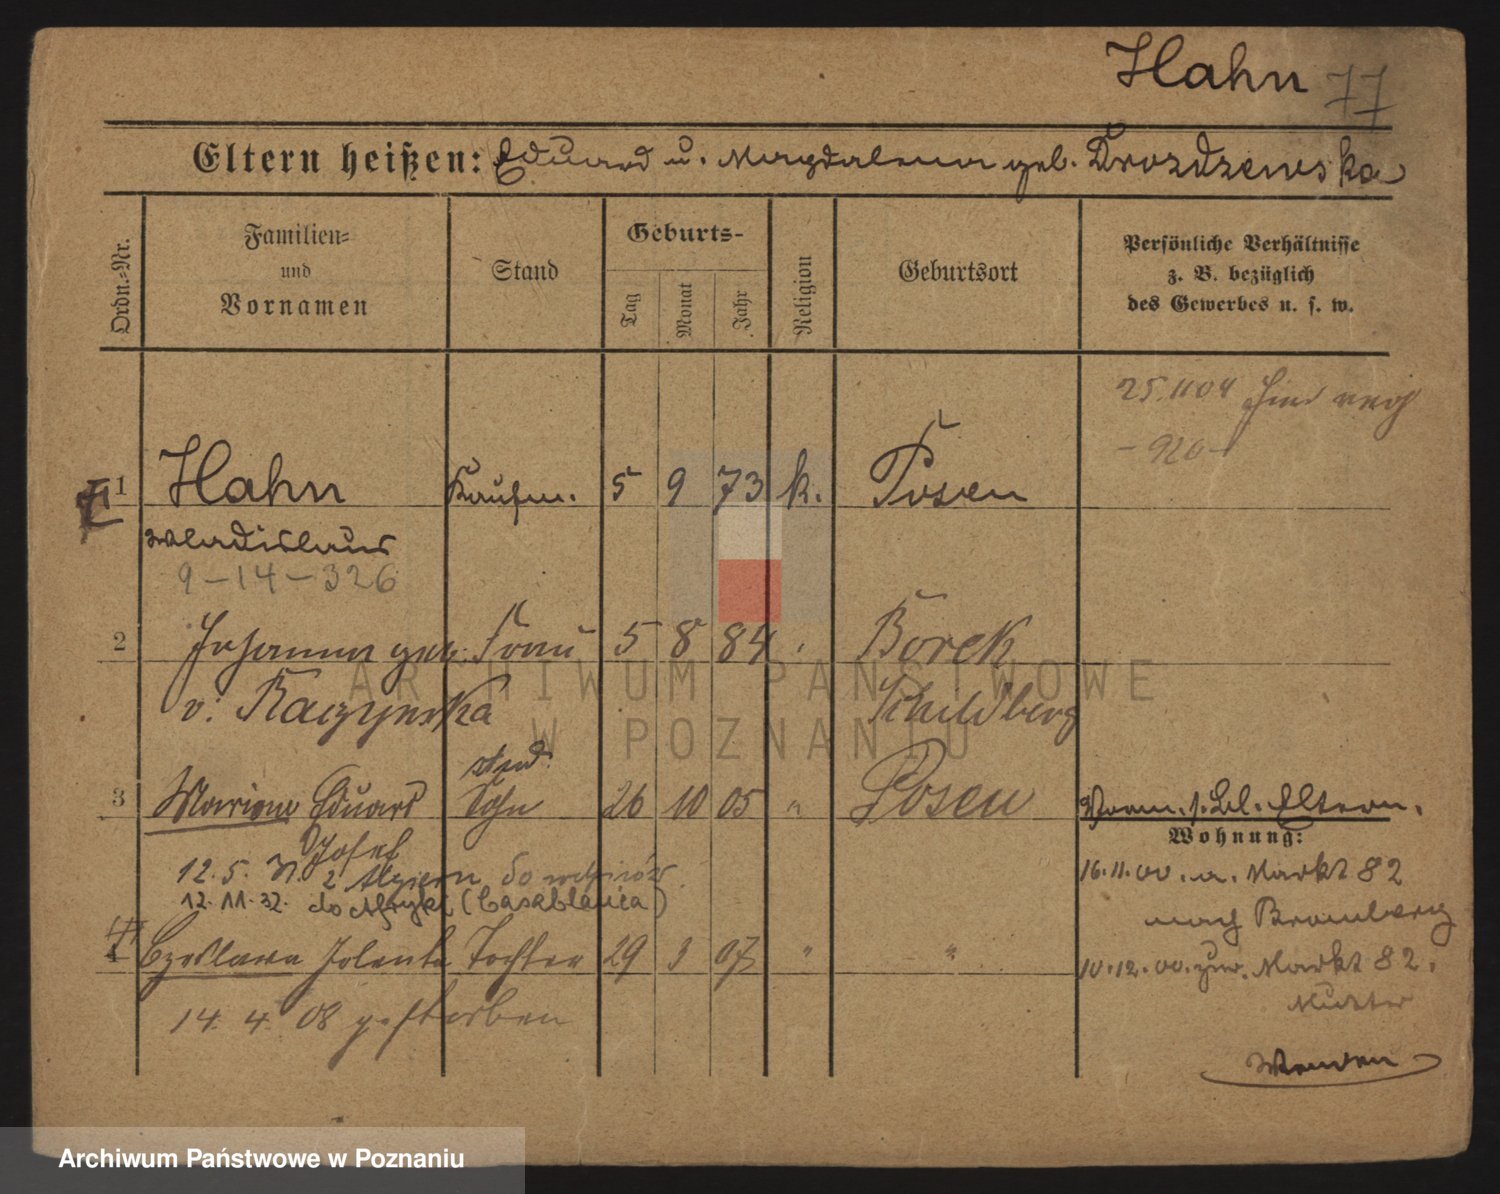 Hahn 77
Eltern heißen: Eduard u. Magdalena geb. Drozdzewska
Ordn.-Nr.
Familien-
und
Vornamen
Stand
Geburts-
Tag
Monat
Jahr
Religion
Geburtsort
Persönliche Verhältnisse
z. B. bezüglich
des Gewerbes u. s. w.
25.11 04
1 Hahn Kaufm. 5 9 73 k. Posen
Wladislaus
9-14-326
2 Johanna geb. Frau 5 8 84 Borek
v. Raczynska Schildberg
stud.
3 Marian Eduard Sohn 26 10 05 " Posen
Vorm. s. Bl. Eltern.
Josef
Wohnung:
12.5.31. z Algieru do
16.11.00. a. Markt 82
12.11.32. do Afryki (Casablanca)
nach Bromberg
4 Czeslawa Jolenta Tochter 29 3 07 " "
10.12.00. zur. Markt 82.
Mutter
14.4.08 gestorben
Wenden
ARCHIWUM PAŃSTWOWE
W POZNANIU
Archiwum Państwowe w Poznaniu